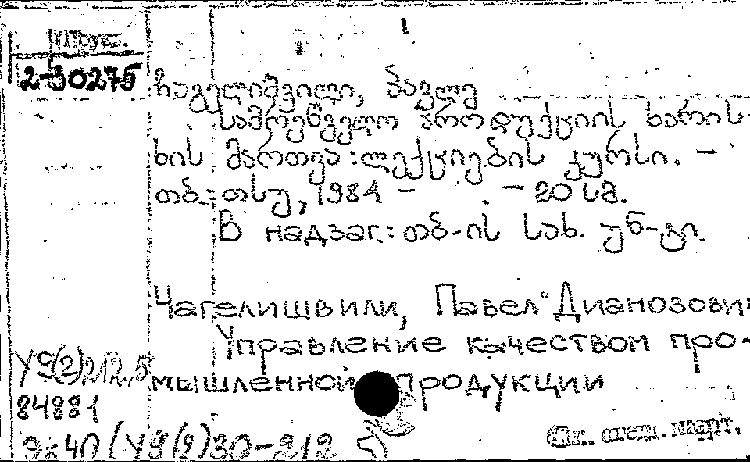 2-30275
ჩაგელიშვილი, პავლე
სამრეწველო პროდუქციის ხარის-
ხის მართვა : ლექციების კურსი. –
თბ.: თსუ, 1984 – – 20 სმ.
В надзаг.: თბ-ის სახ. უნ-ტი.
Чагелишвили, Павел Дианозович
Управление качеством про-
мышленной продукции
У9(2)212.5
84881